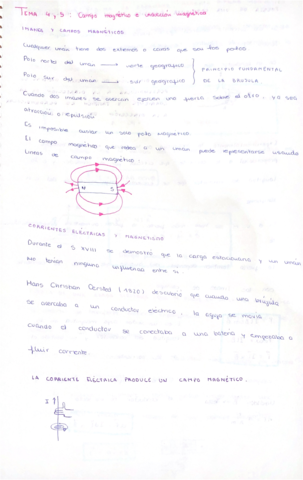 TEMA 4, 5 : Campo magnético e inducción magnética
IMANES Y CAMPOS MAGNÉTICOS
Cualquier imán tiene dos extremos o caras que son los polos
Polo norte del iman → norte geográfico
Polo Sur del iman → sur geográfico
PRINCIPIO FUNDAMENTAL
DE LA BRÚJULA
Cuando dos imanes se acercan ejercen una fuerza sobre el otro, ya sea
atracción o repulsión
Es imposible aislar un solo polo magnético
El campo magnético que rodea a un imán puede representarse usando
líneas de campo magnético.
N S
CORRIENTES ELÉCTRICAS Y MAGNETISMO
Durante el S XVIII se demostró que la carga estacionaria y un iman
no tenían ninguna influencia entre sí.
Hans Christian Oersted (1820) descubrió que cuando una brújula
se acercaba a un conductor eléctrico, la aguja se movía
cuando el conductor se conectaba a una batería y empezaba a
fluir corriente.
LA CORRIENTE ELÉCTRICA PRODUCE UN CAMPO MAGNÉTICO.
I